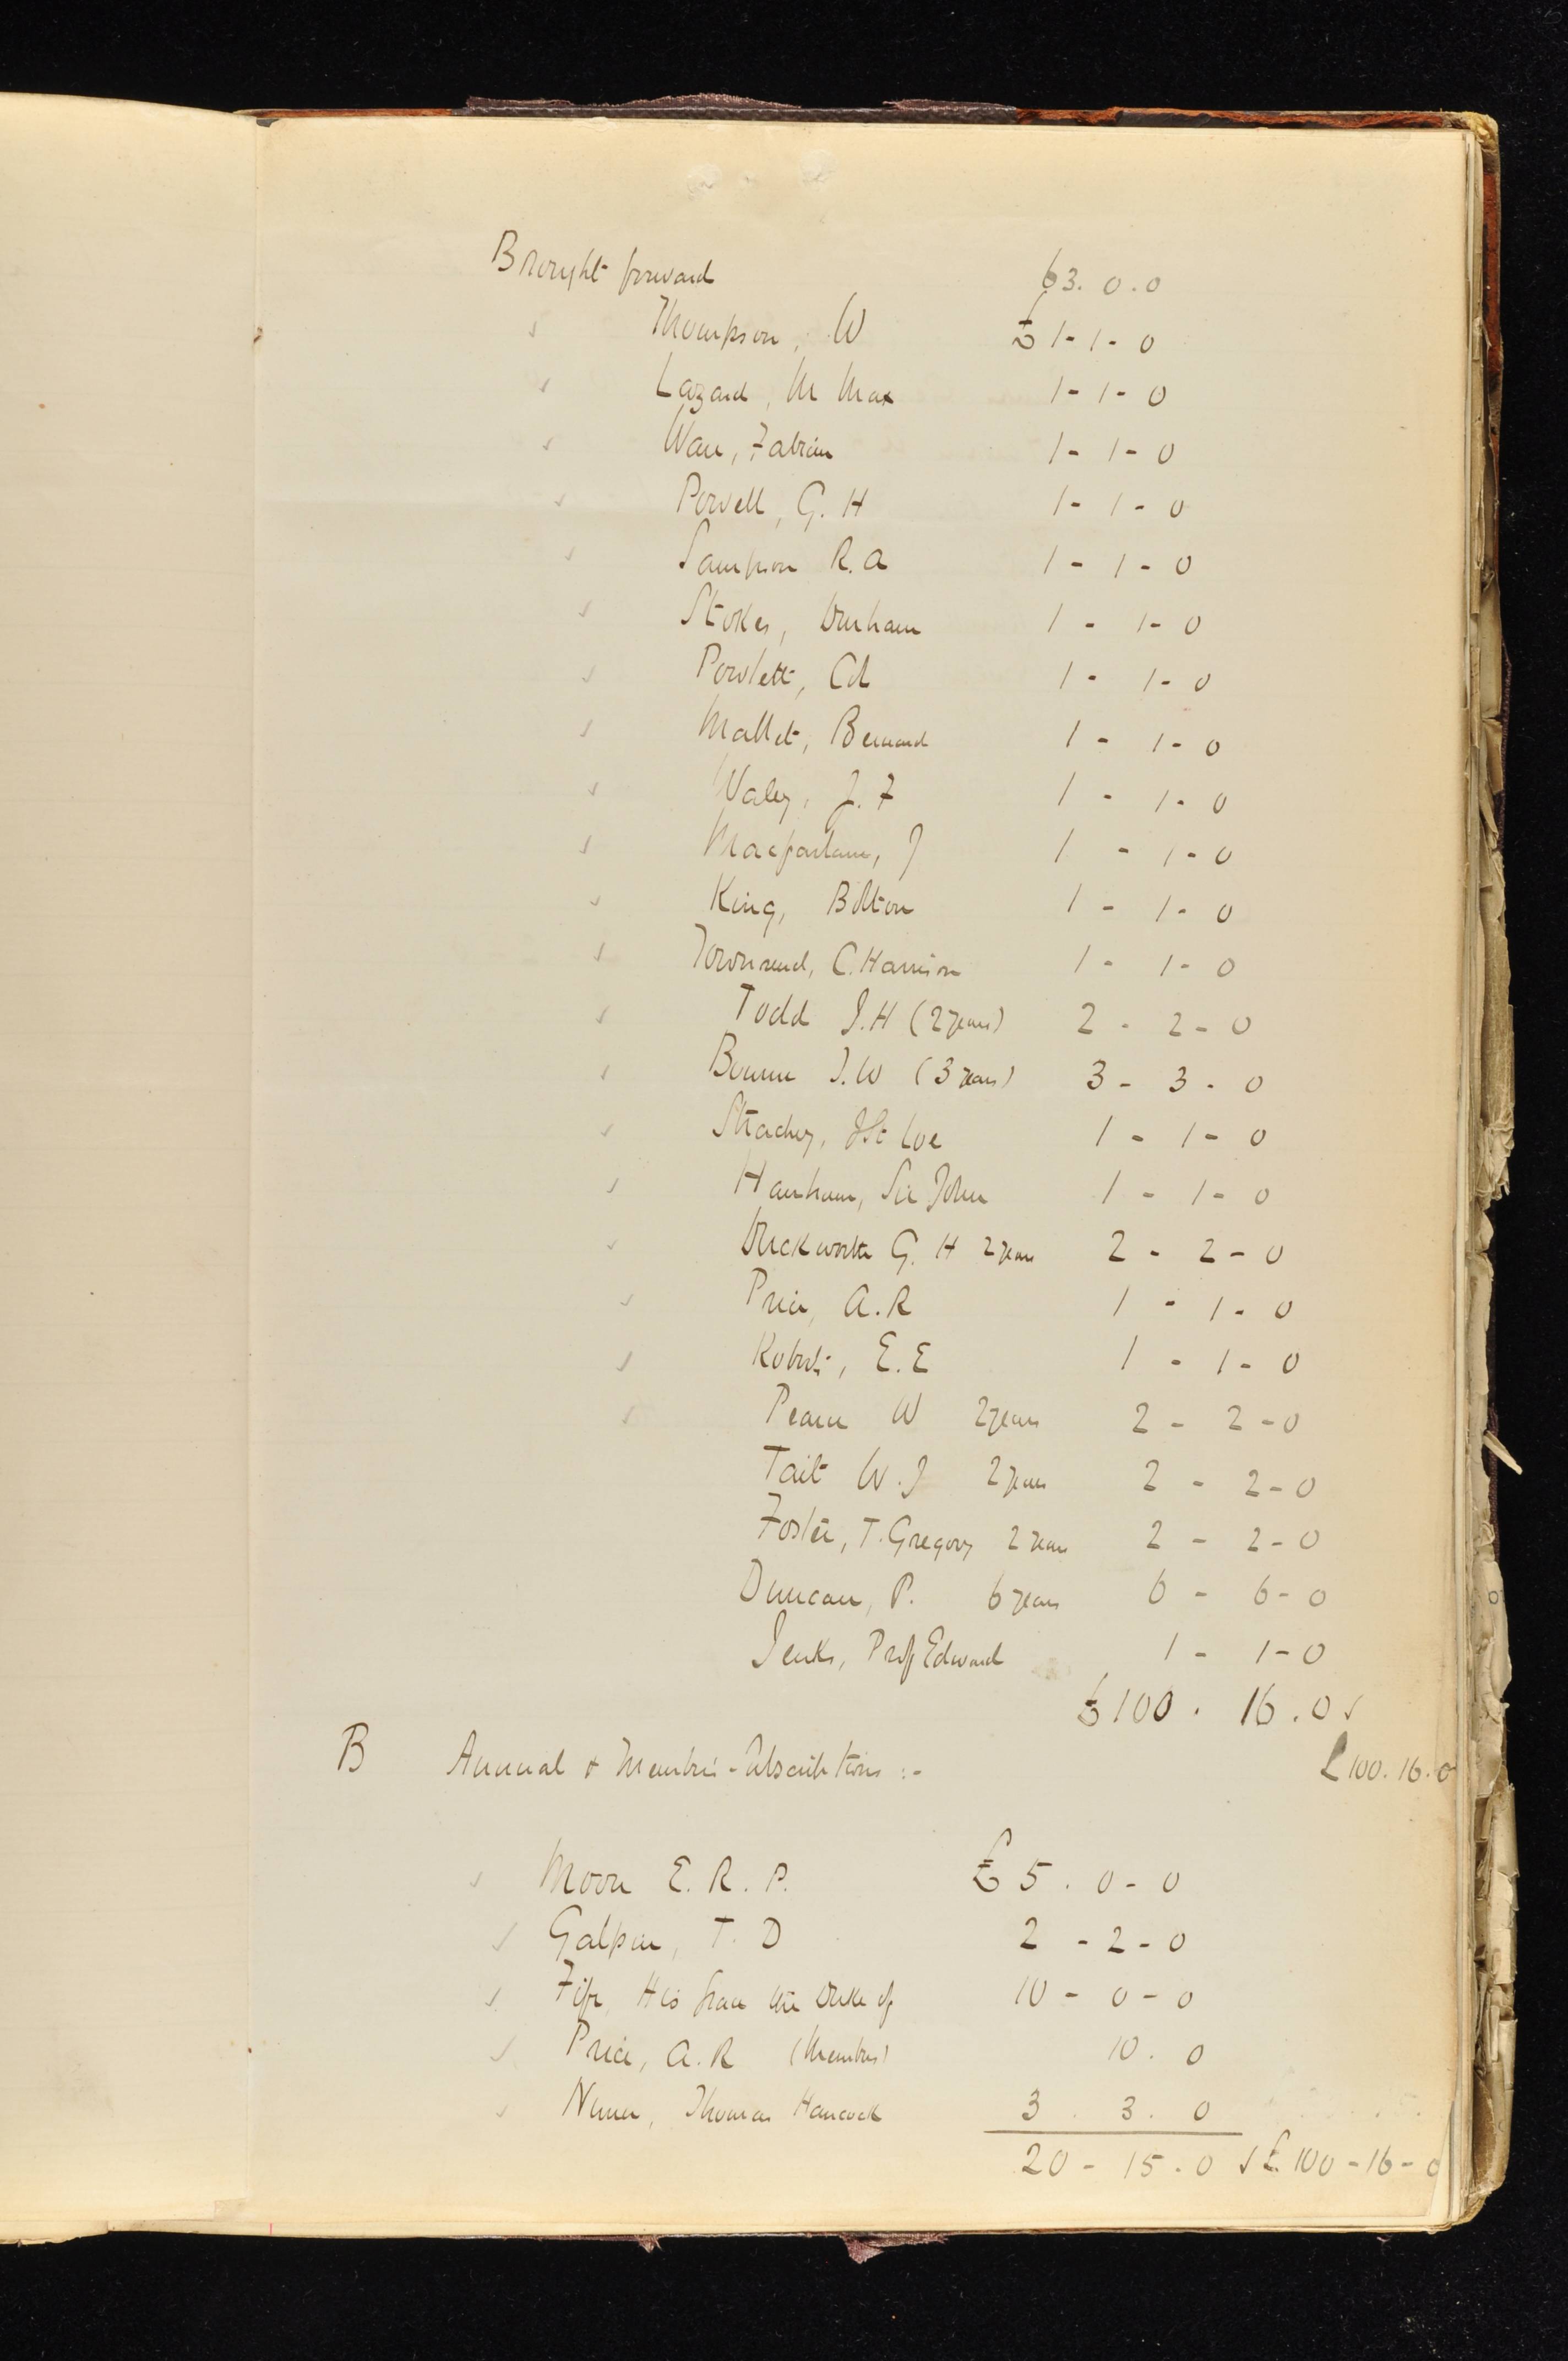 Brought forward 63. 0. 0
Thompson, W £1-1-0
Lazard, M Max 1-1-0
Ware, Fabian 1-1-0
Powell, G. H 1-1-0
Sampson R. A 1-1-0
Stokes, Durham 1-1-0
Powlett, Col 1-1-0
Mallet, Bernard 1-1-0
Waley, J. F 1-1-0
Macfarlane, J 1-1-0
King, Bolton 1-1-0
Townsend, C. Harrison 1-1-0
Todd J. H (2 years) 2-2-0
Bourne J. W (3 years) 3-3-0
Strachey, J St Loe 1-1-0
Hanham, Sir John 1-1-0
Duckworth G. H 2 years 2-2-0
Price, A. R 1-1-0
Roberts, E. E 1-1-0
Pearce W 2 years 2-2-0
Tait W. J 2 years 2-2-0
Foster, T. Gregory 2 years 2-2-0
Duncan, P. 6 years 6-6-0
Jenks, Prof Edward 1-1-0
£100. 16. 0 ✓
B Annual & Members-Subscriptions :- £100. 16. 0
Moon E. R. P. £5. 0-0
Galpin, T. D 2-2-0
Fife, His Grace the Duke of 10-0-0
Price, A. R (Members) 10. 0
Nunn, Thomas Hancock 3. 3. 0
20-15. 0 ✓ £100-16-0